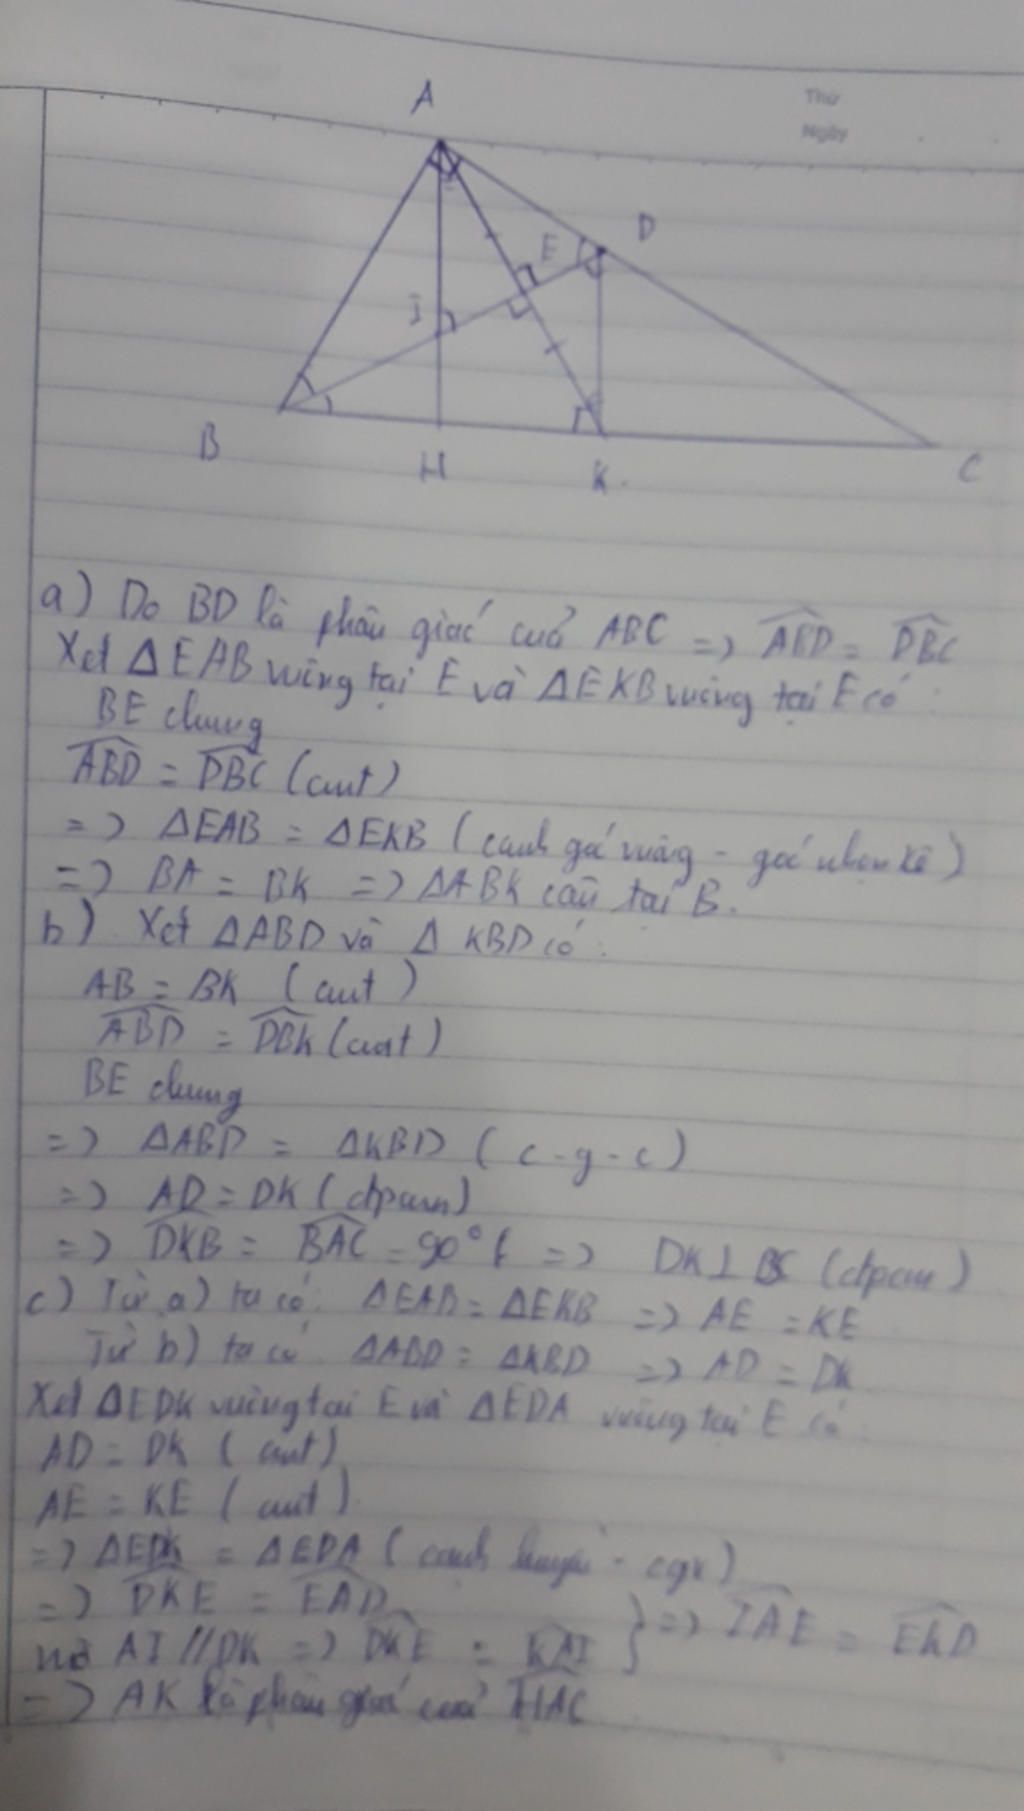 Thứ
Ngày
A
D
E
I
B
H
K
C
a) Do BD là phân giác của ABC => ABD = DBC
Xét ΔEAB vuông tại E và ΔEKB vuông tại E có:
BE chung
ABD = DBC (cmt)
=> ΔEAB = ΔEKB (cạnh góc vuông - góc nhọn kề)
=> BA = BK => ΔABK cân tại B.
b) Xét ΔABD và Δ KBD có:
AB = BK (cmt)
ABD = DBK (cmt)
BE chung
=> ΔABD = ΔKBD (c-g-c)
=> AD = DK (đpcm)
=> DKB = BAC = 90° => DK⊥BC (đpcm)
c) Từ a) ta có: ΔEAB = ΔEKB => AE = KE
Từ b) ta có: ΔABD = ΔKBD => AD = DK
Xét ΔEDK vuông tại E và ΔEDA vuông tại E có:
AD = DK (cmt)
AE = KE (cmt)
=> ΔEDK = ΔEDA (cạnh huyền - cgv)
=> DKE = EAD
mà AI // DK => DKE = KAI } => IAE = EKD
=> AK là phân giác của HAC